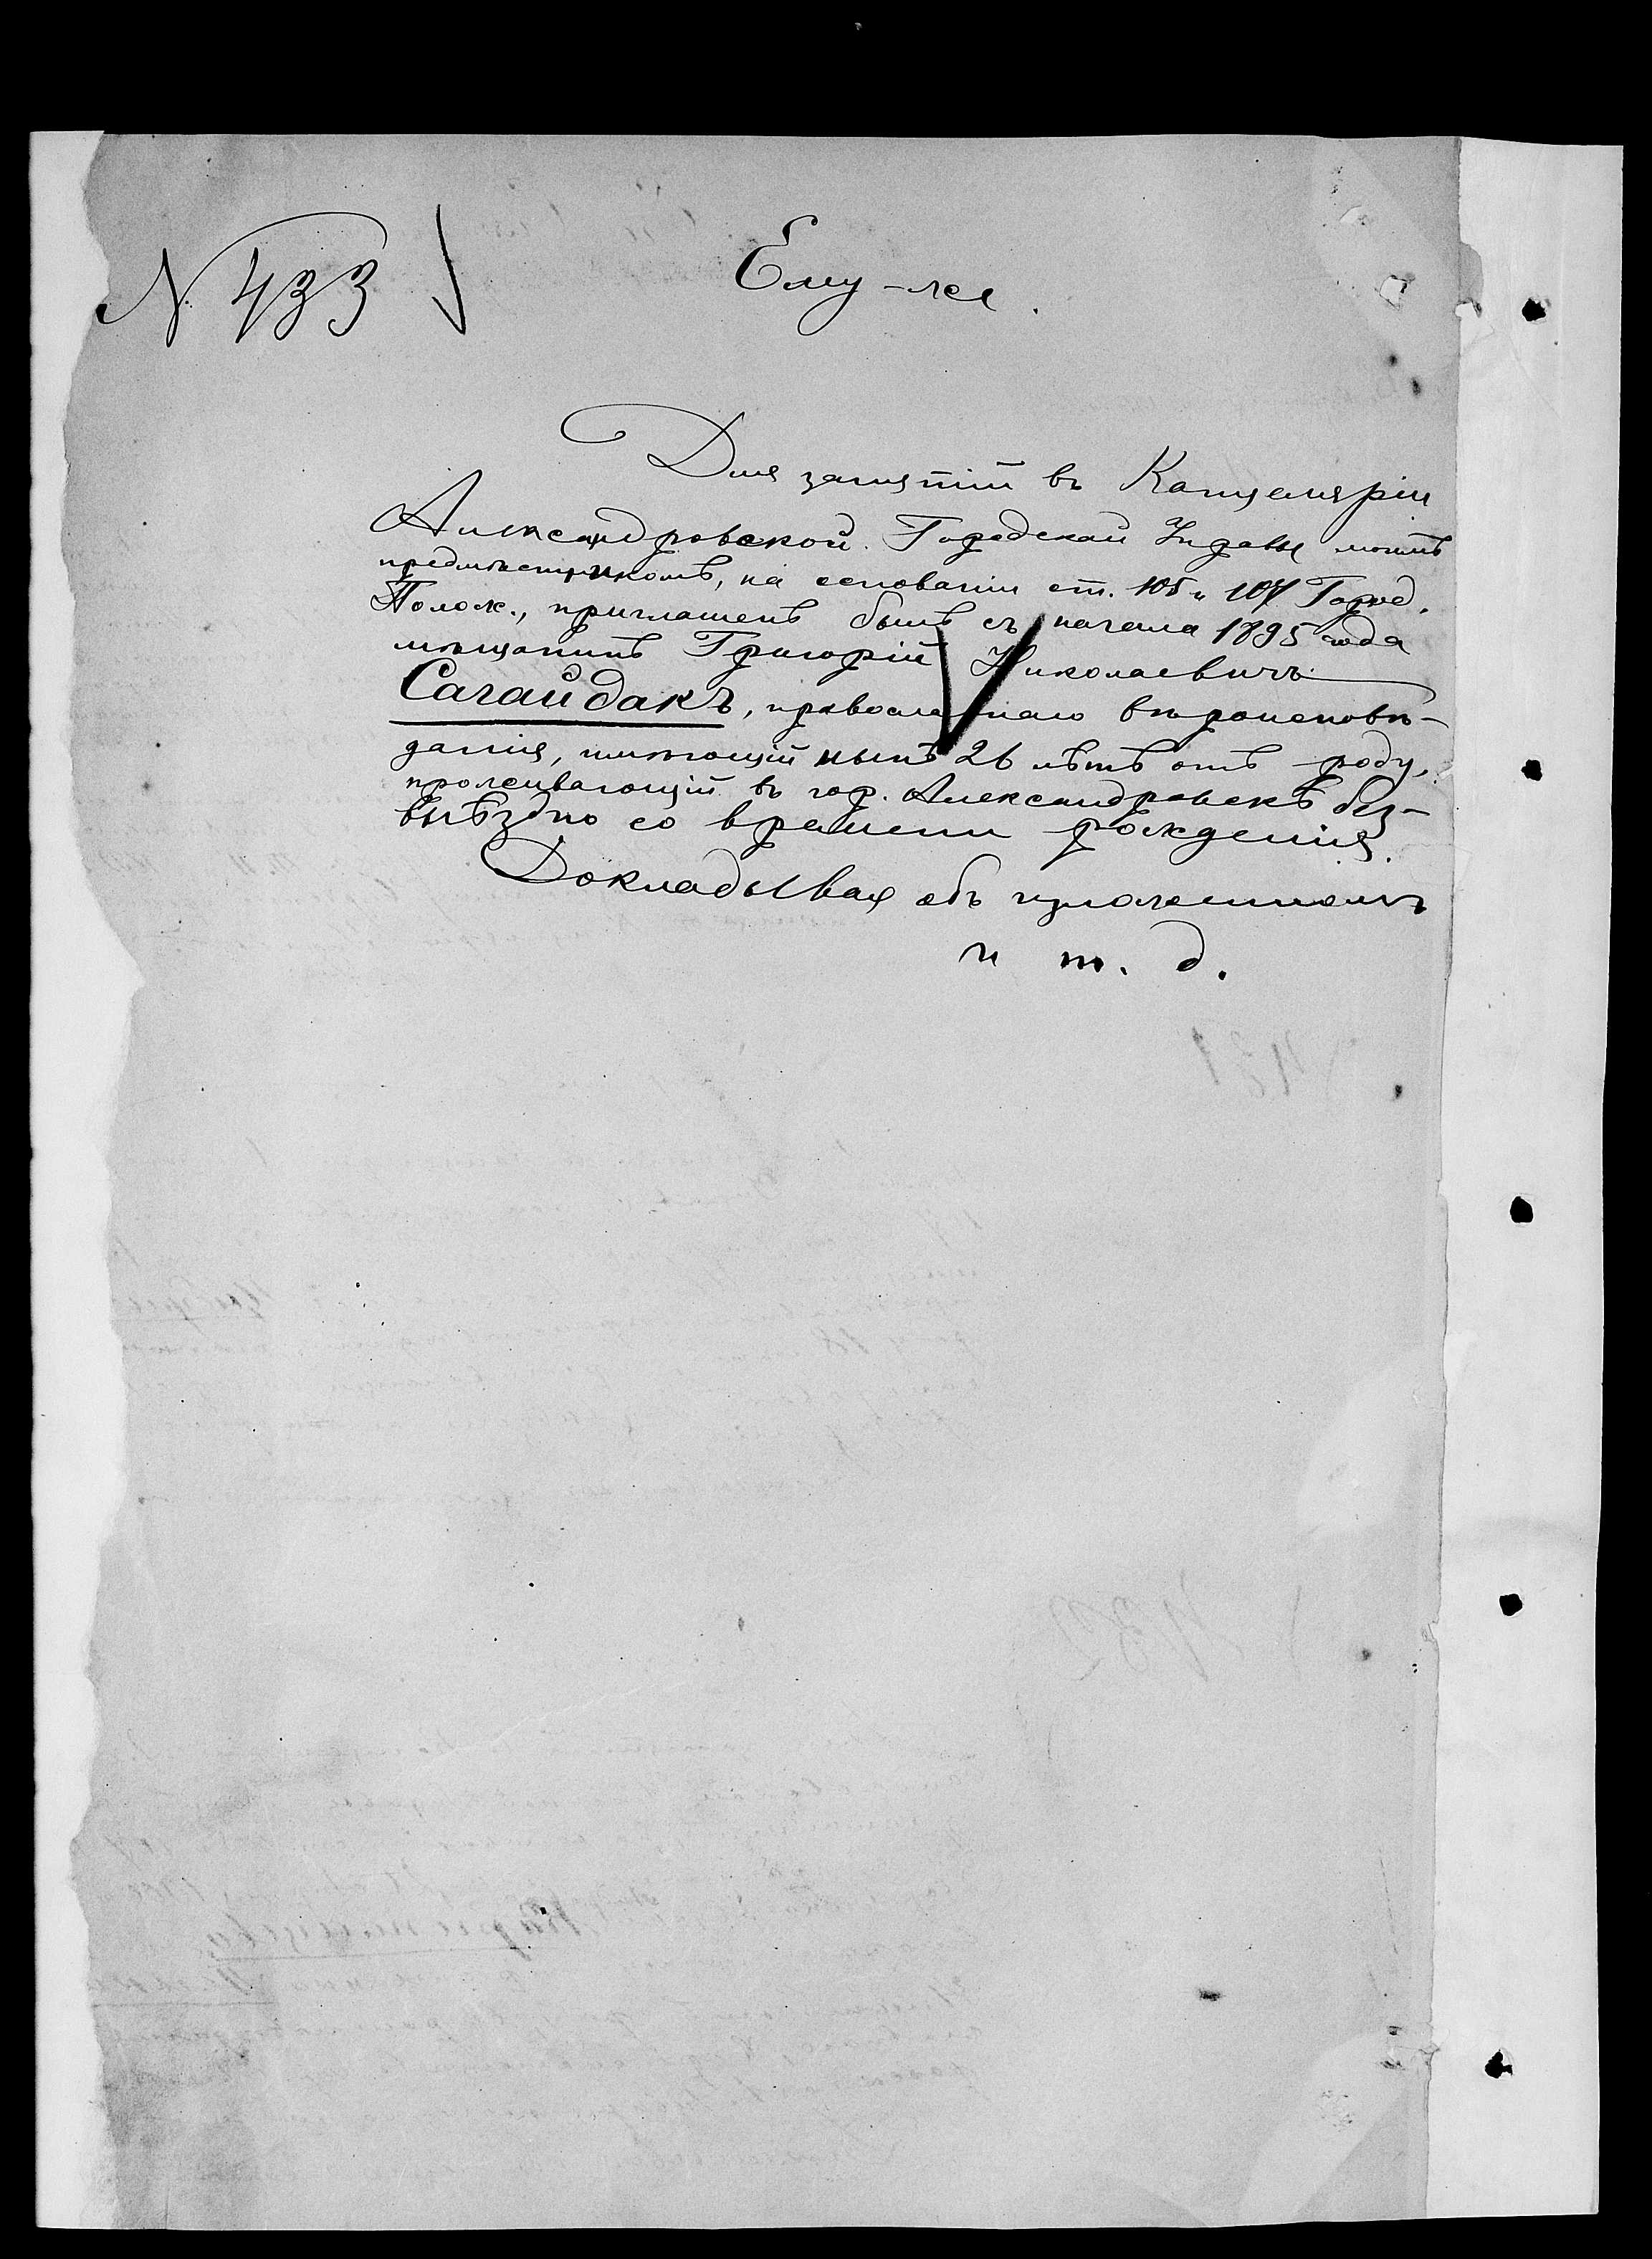 № 433
Ему-же.
Для занятій въ Канцеляріи
Александровской Городской Управы моимъ
предмѣстникомъ, на основаніи ст. 105 и 107 Город.
Полож., приглашенъ былъ съ начала 1895 года
мѣщанинъ Григорій Николаевичъ
Сагайдакъ, православнаго вѣроисповѣ-
данія, имѣющій нынѣ 26 лѣтъ отъ роду,
проживающій въ гор. Александровскѣ без-
выѣздно со времени рожденія.
Докладывая объ изложенномъ
и т. д.